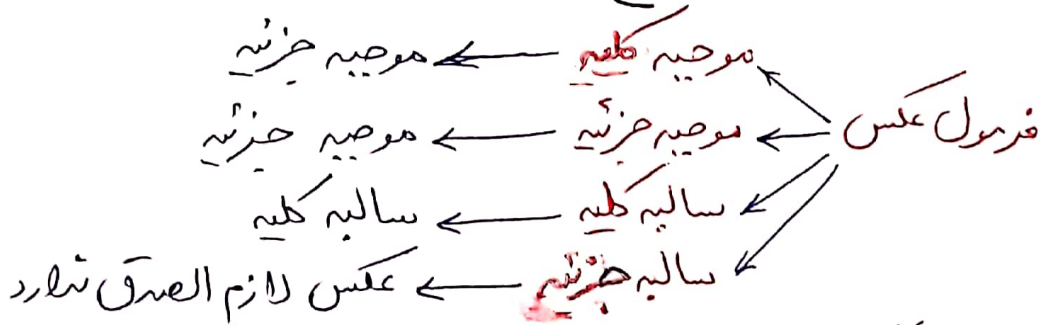 فرمول عکس
موجبه کلیه ← موجبه جزئیه
موجبه جزئیه ← موجبه جزئیه
سالبه کلیه ← سالبه کلیه
سالبه جزئیه ← عکس لازم الصدق ندارد